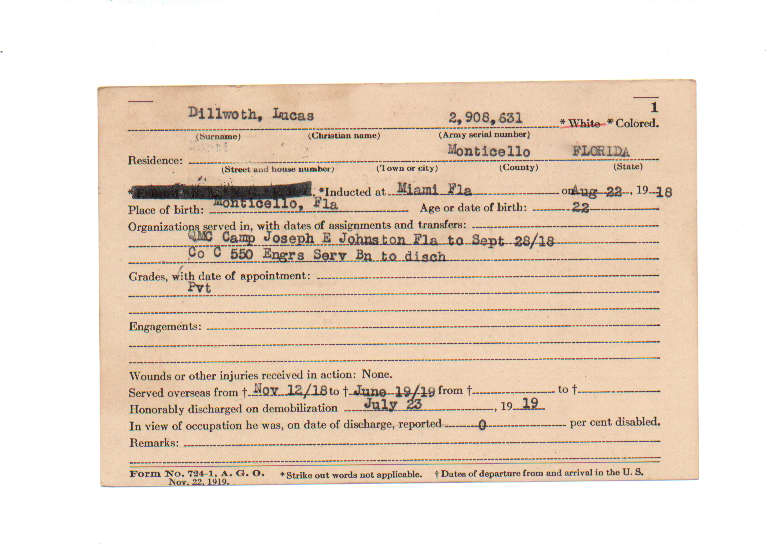 1
Dillwoth, Lucas 2,908,631 * White * Colored.
(Surname) (Christian name) (Army serial number)
Monticello FLORIDA
Residence:
(Street and house number) (Town or city) (County) (State)
* Inducted at Miami Fla on Aug 22, 19 18
Place of birth: Monticello, Fla Age or date of birth: 22
Organizations served in, with dates of assignments and transfers:
QMC Camp Joseph E Johnston Fla to Sept 28/18
Co C 550 Engrs Serv Bn to disch
Grades, with date of appointment:
Pvt
Engagements:
Wounds or other injuries received in action: None.
Served overseas from † Nov 12/18 to † June 19/19 from † to †
Honorably discharged on demobilization July 23, 19 19
In view of occupation he was, on date of discharge, reported 0 per cent disabled.
Remarks:
Form No. 724-1, A. G. O. * Strike out words not applicable. † Dates of departure from and arrival in the U. S.
Nov. 22, 1919.